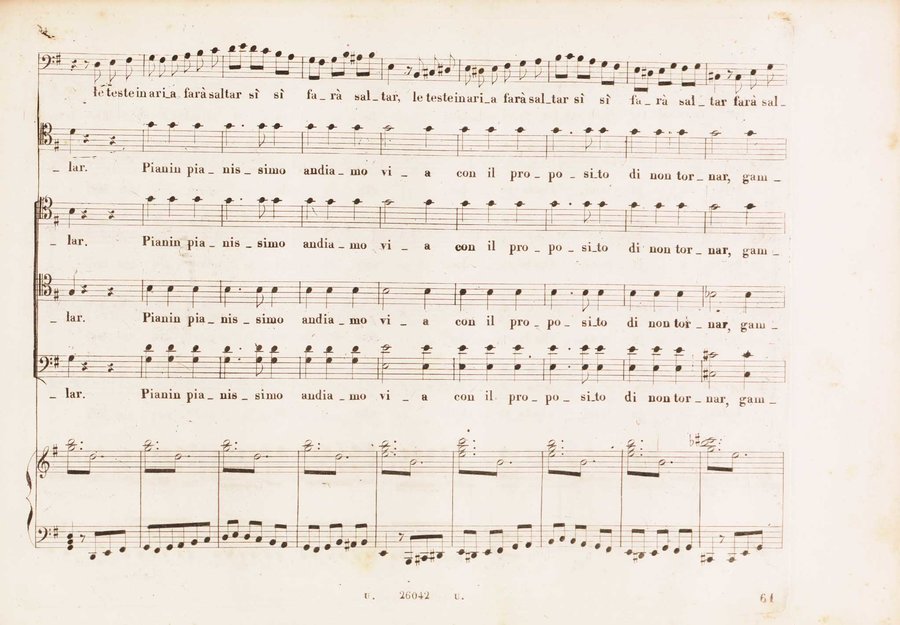 le teste in ari_a farà saltar sì sì fa_rà sal_tar, le teste in ari_a farà sal_tar sì sì fa_rà sal_tar farà sal_
_ lar. Pianin pia_nis_simo andia_mo vi_a con il pro_po_si_to di non tor_nar, gam_
_ lar. Pianin pia_nis_simo andia_mo vi_a con il pro_po_si_to di non tor_nar, gam_
_ lar. Pianin pia_nis_simo andia_mo vi_a con il pro_po_si_to di non tor_nar, gam_
_ lar. Pianin pia_nis_simo andia_mo vi_a con il pro_po_si_to di non tor_nar, gam_
U. 26042 U.
61